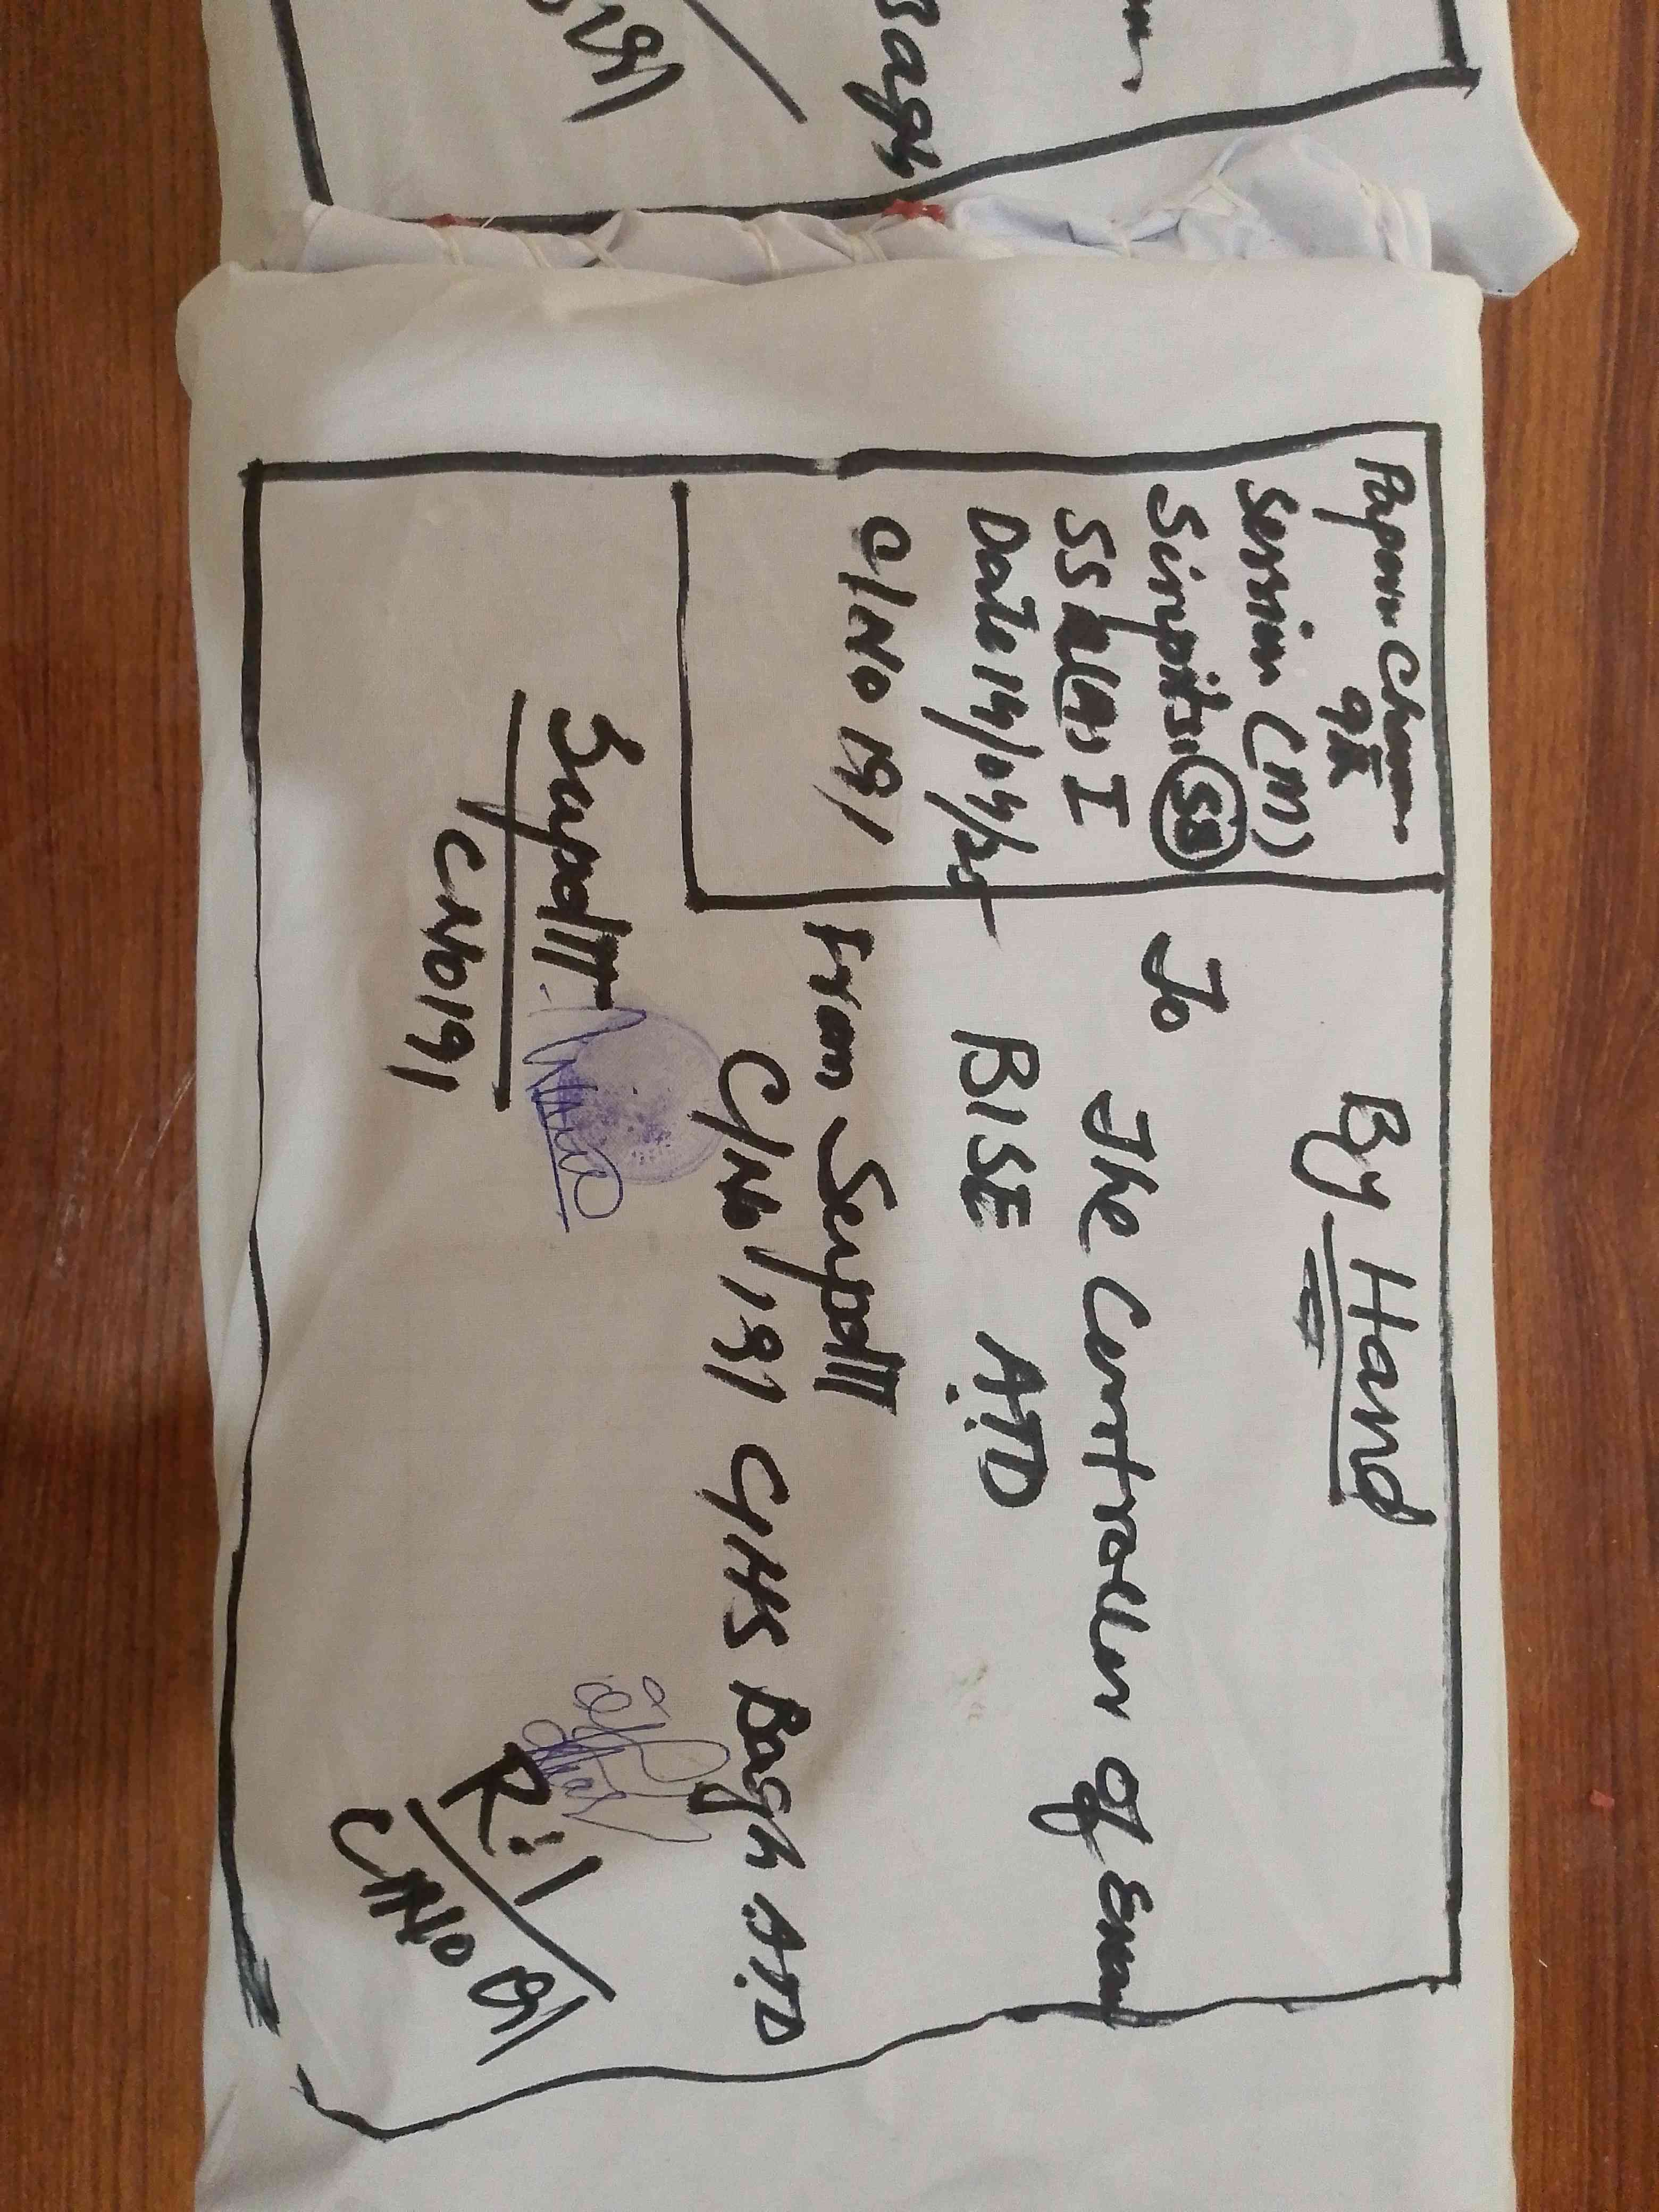 By Hand
Paper Chem
9th
Session (M)
Scripts 58
SSC (A) I
Date 14/04/25
C/No 191
To
The Controller of Exam
BISE A.TD
From Supdtt
C/No 191 GHS Bagh A.TD
Supdtt
C/NO 191
R.I
C/NO 191
Bagh
191